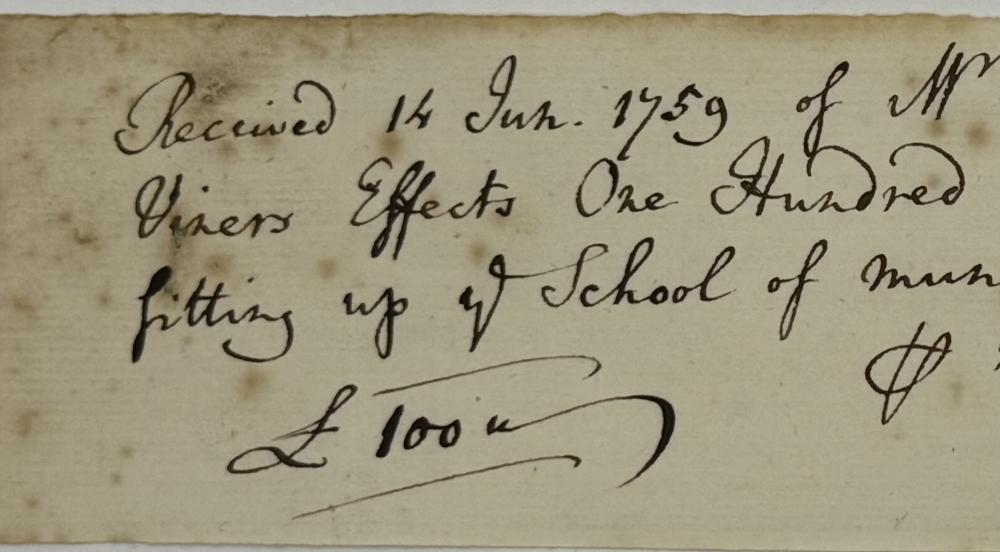 Received 14 Jun. 1759 of Mr
Viners Effects One Hundred
fitting up ye School of mun
£ 100